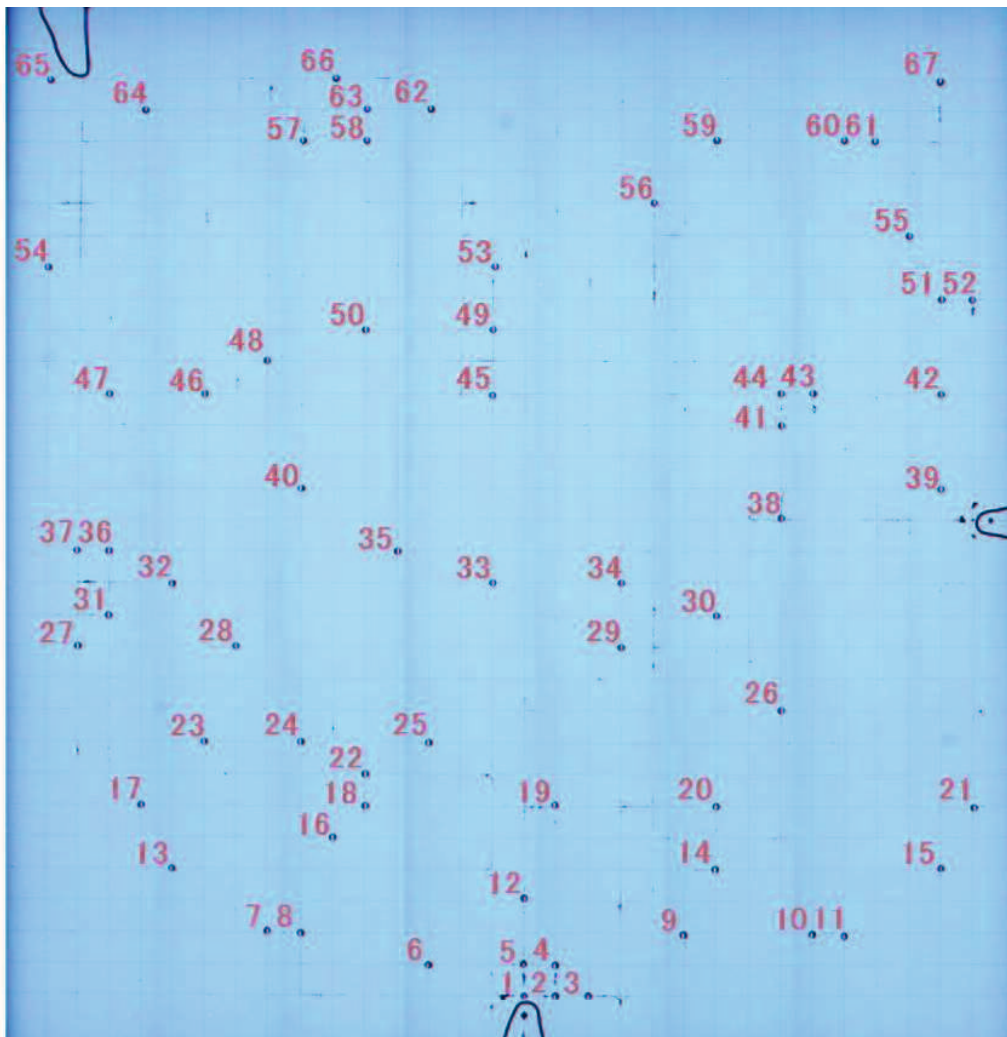 65 66 67
64 63 62
57 58 59 60 61
56
55
54 53
51 52
50 49
48
47 46 45 44 43 42
41
40 39
38
37 36 35
32 33 34
31 30
27 28 29
26
23 24 25
22
17 18 19 20 21
16
13 14 15
12
7 8 9 10 11
6 5 4
1 2 3